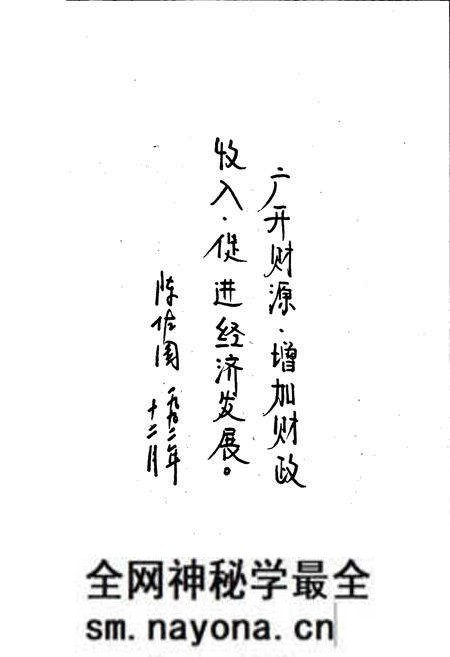 广开财源·增加财政
收入·促进经济发展。
陈佐国 一九九二年
十二月
全网神秘学最全
sm.nayona.cn